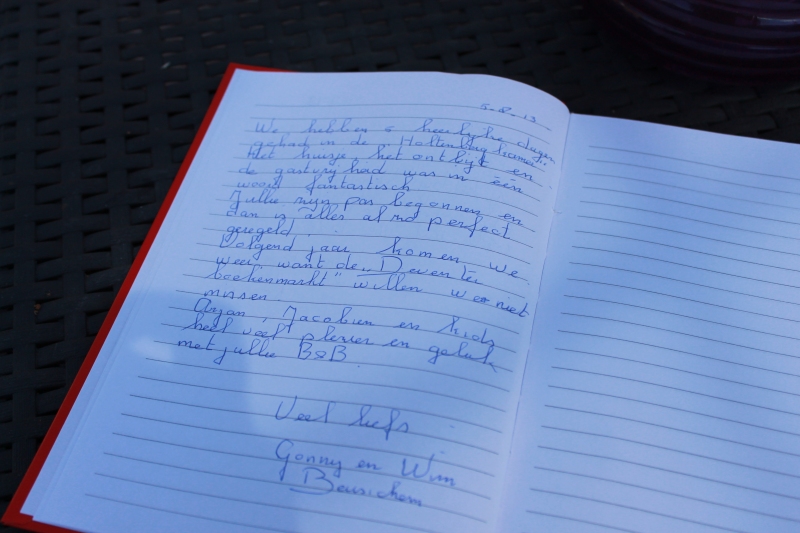 5-8-13
We hebben 2 heerlijke dagen
gehad in de Holtenbergkamer.
Het huisje, het ontbijt en
de gastvrijheid was in één
woord fantastisch
Jullie zijn pas begonnen en
dan is alles al zo perfect
geregeld.
Volgend jaar komen we
weer want de "Deventer
boekenmarkt" willen we niet
missen
Arjan, Jacobien en kids
heel veel plezier en geluk
met jullie B&B
Veel liefs
Gonny en Wim
Beusichem